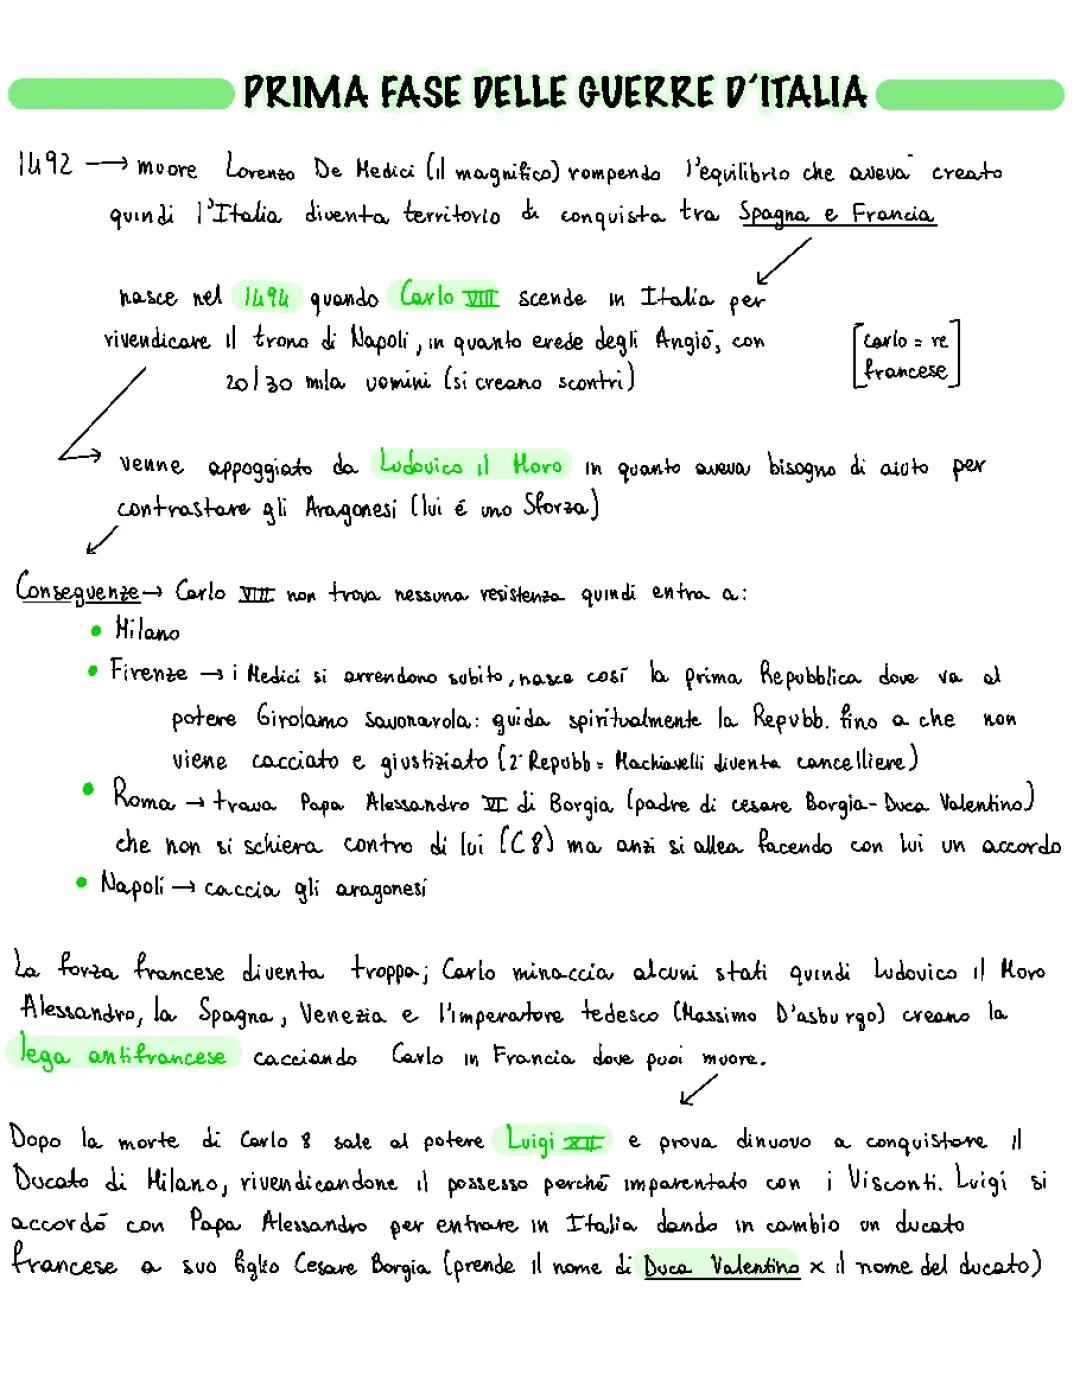 PRIMA FASE DELLE GUERRE D'ITALIA
1492 → muore Lorenzo De Medici (il magnifico) rompendo l'equilibrio che aveva creato
quindi l'Italia diventa territorio di conquista tra Spagna e Francia
nasce nel 1494 quando Carlo VIII scende in Italia per
rivendicare il trono di Napoli, in quanto erede degli Angió, con
20/30 mila uomini (si creano scontri)
[Carlo = re
francese]
venne appoggiato da Ludovico il Moro in quanto aveva bisogno di aiuto per
contrastare gli Aragonesi (lui é uno Sforza)
Conseguenze → Carlo VIII non trova nessuna resistenza quindi entra a:
• Milano
• Firenze → i Medici si arrendono subito, nasce cosí la prima Repubblica dove va al
potere Girolamo Savonarola: guida spiritualmente la Repubb. fino a che non
viene cacciato e giustiziato (2° Repubb = Machiavelli diventa cancelliere)
• Roma → trova Papa Alessandro VI di Borgia (padre di cesare Borgia - Duca Valentino)
che non si schiera contro di lui (C8) ma anzi si allea facendo con lui un accordo
• Napoli → caccia gli aragonesi
La forza francese diventa troppa; Carlo minaccia alcuni stati quindi Ludovico il Moro
Alessandro, la Spagna, Venezia e l'imperatore tedesco (Massimo D'asburgo) creano la
lega antifrancese cacciando Carlo in Francia dove puoi muore.
Dopo la morte di Carlo 8 sale al potere Luigi XII e prova dinuovo a conquistare il
Ducato di Milano, rivendicandone il possesso perché imparentato con i Visconti. Luigi si
accordó con Papa Alessandro per entrare in Italia dando in cambio un ducato
francese a suo figlio Cesare Borgia (prende il nome di Duca Valentino x il nome del ducato)